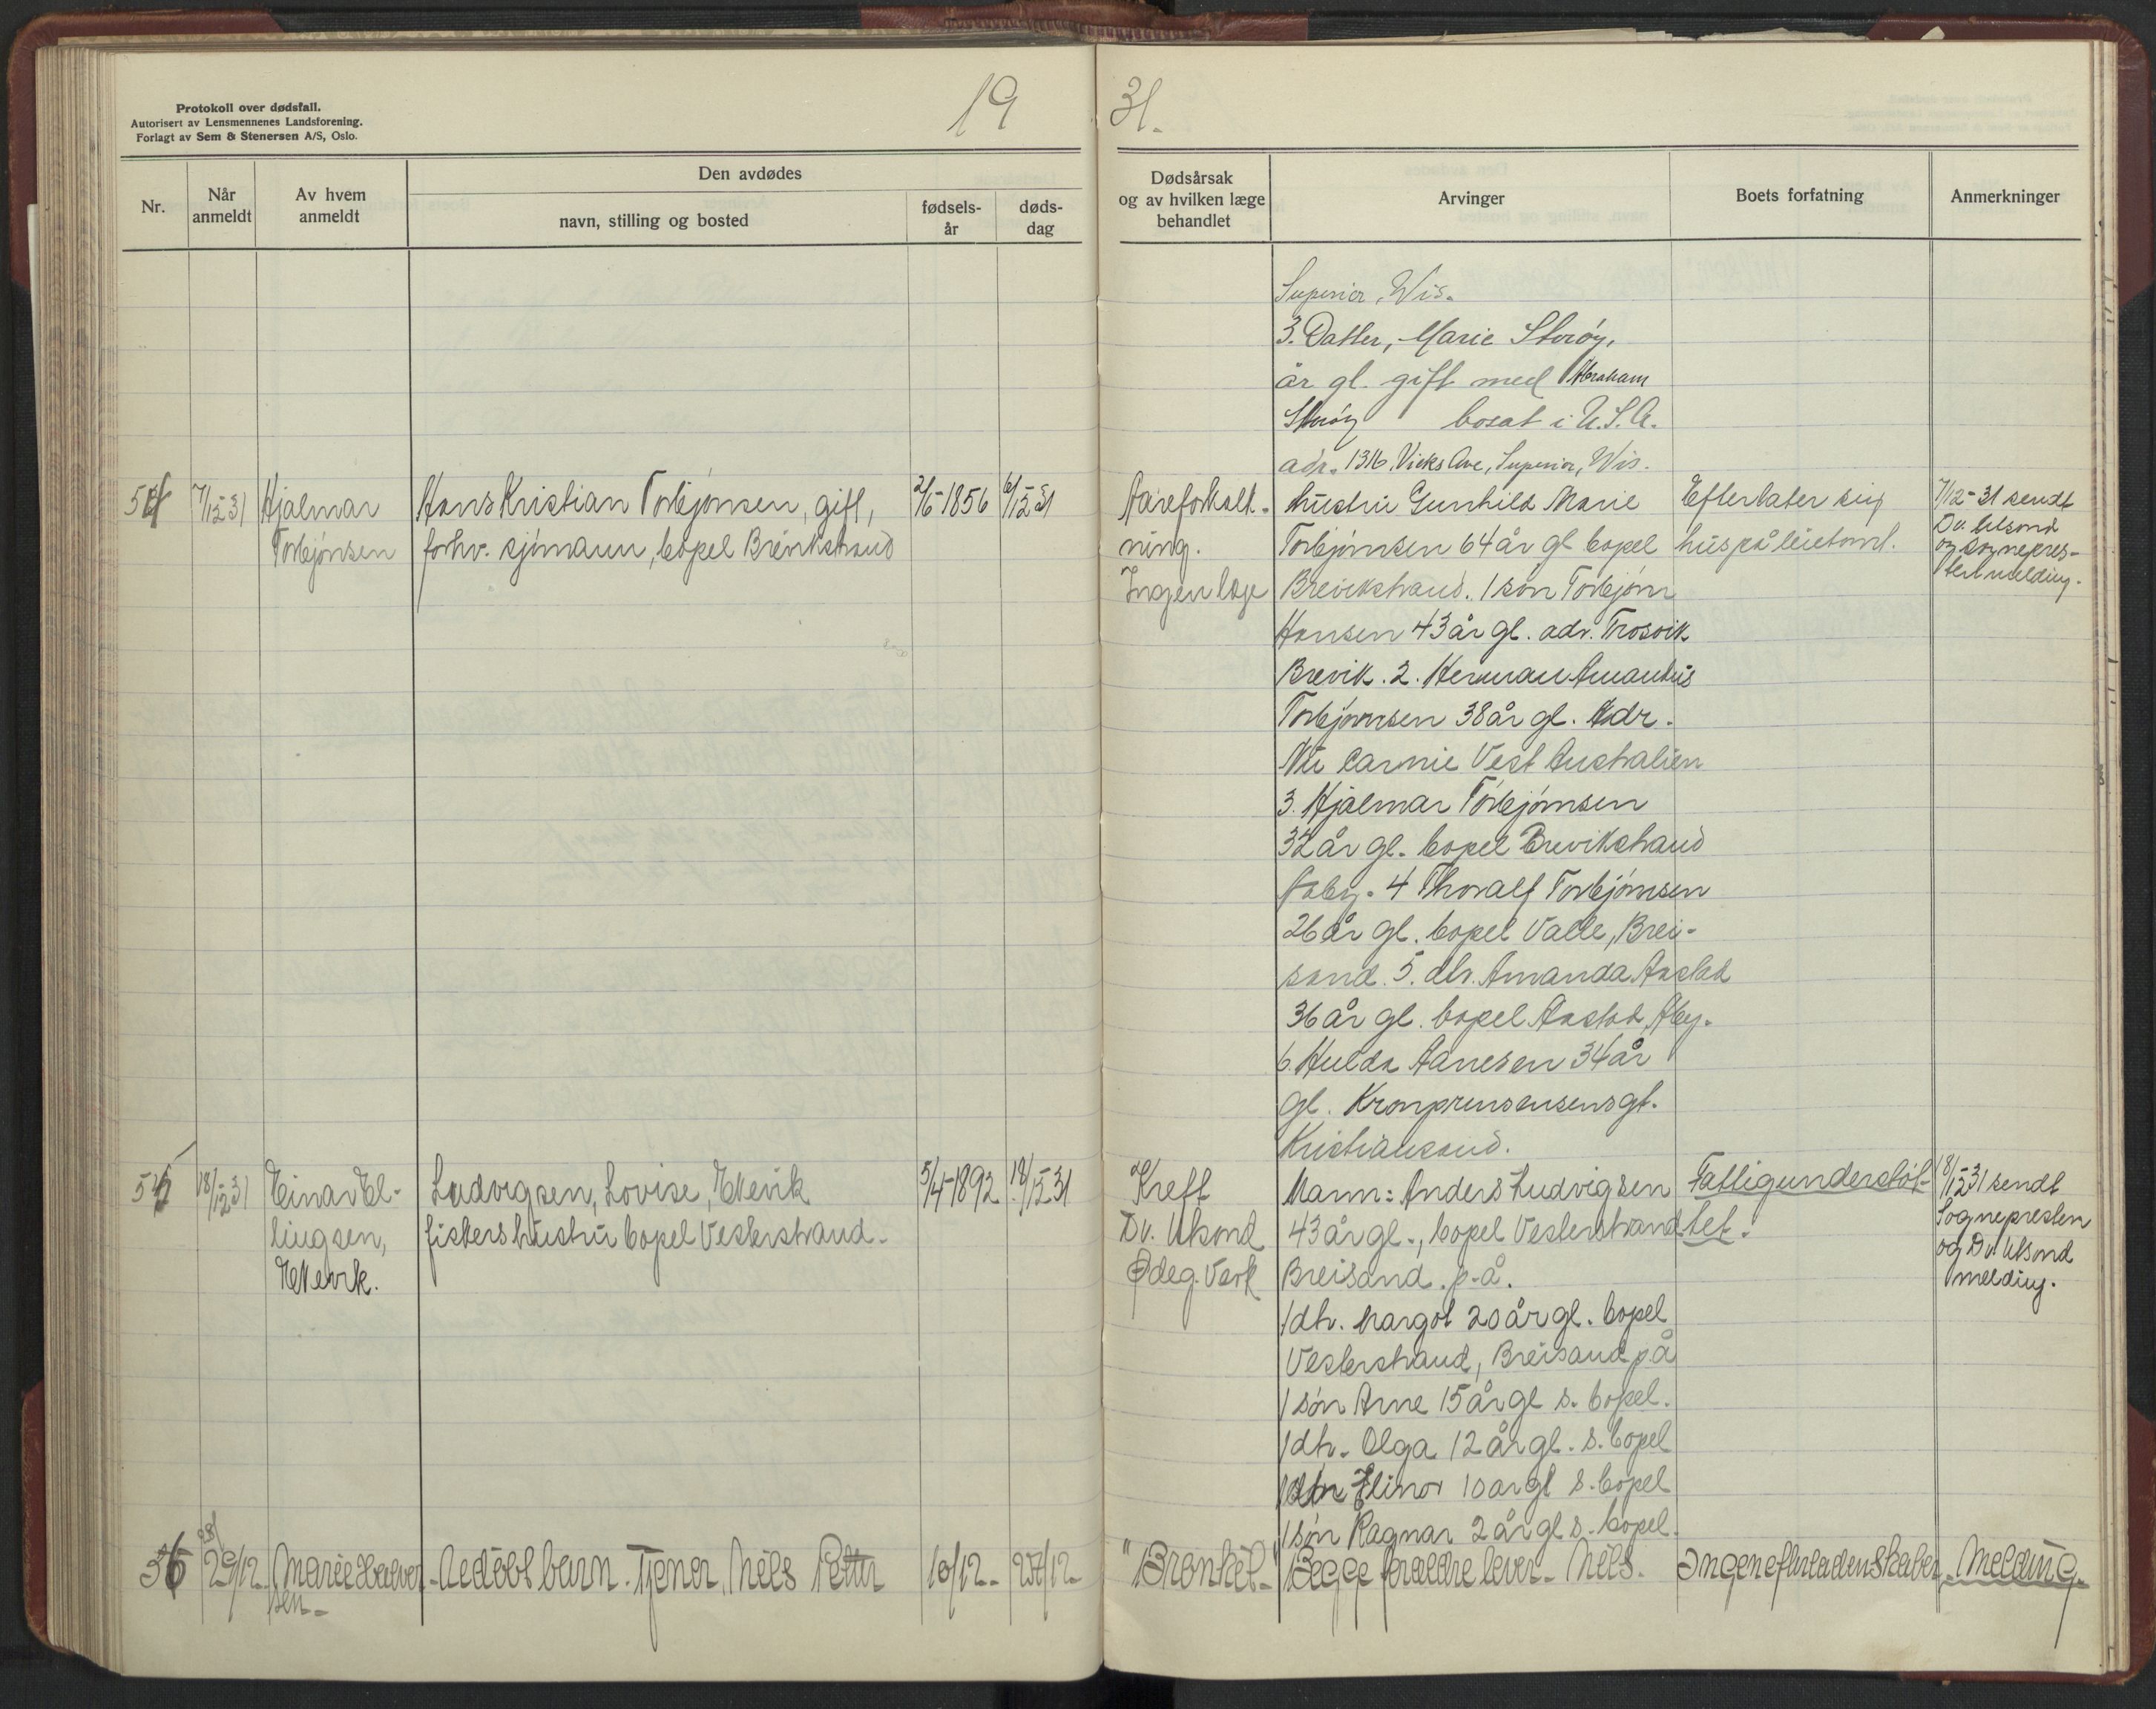 Protokoll over dødsfall.
Autorisert av Lensmennenes Landsforening.
Forlagt av Sem & Stenersen A/S, Oslo.
19
31.
Nr.
Når
anmeldt
Av hvem
anmeldt
Den avdødes
navn, stilling og bosted
fødsels-
år
døds-
dag
Dødsårsak
og av hvilken læge
behandlet
Arvinger
Boets forfatning
Anmerkninger
Superior, Wis.
3. Datter, Marie Storöy,
år gl. gift med Abraham
Storöy bosat i U.S.A.
adr. 1316, Vicks Ave, Superior, Wis.
54
7/12-31
Hjalmar
Torbjörnsen
Hans Kristian Torbjörnsen, gift,
forhv. sjömann, bopel Brevikstrand
2/6-1856
6/12-31
Aareforkalk-
ning.
Ingen læge
hustru Gunhild Marie
Torbjörnsen 64 år gl bopel
Brevikstrand. 1 sön Torbjörn
Hansen 43 år gl. adr. Trosvik
Brevik. 2. Herman Amandus
Torbjörnsen 38 år gl. Adr.
Vest Australien
3. Hjalmar Torbjörnsen
32 år gl. bopel Brevikstrand
Aaby. 4 Thoralf Torbjörnsen
26 år gl. bopel Valle, Brei-
sand. 5. dtr. Amanda Aastad
36 år gl. bopel Aastad, Aby.
6. Hulda Aanesen 34 år
gl. Kronprinsensensgt.
Kristiansand.
Efterlater sig
hus på leietomt.
7/12-31 sendt
Dr. Ulsond
og Sognepres-
ten melding.
55
18/12-31
Einar El-
lingsen,
Ekevik.
Ludvigsen, Lovise, Ekevik
fiskers hustru bopel Vesterstrand.
5/4-1892
18/12-31
Kreft
Dr. Ulsond
Ødeg. Verk
Mann: Anders Ludvigsen
43 år gl., bopel Vesterstrand
Breisand. p.å.
1 dtr. Margot 20 år gl. bopel
Vesterstrand, Breisand p å
1 sön Arne 15 år gl s. bopel.
1 dtr. Olga 12 år gl. s. bopel
1 dtr Elinor 10 år gl s. bopel
1 sön Ragnar 2 år gl s. bopel.
Fattigunderstöt-
tet.
18/12 31 sendt
Sognepresten
og Dr. Ulsond
melding.
56
29/12
Marie Halvor-
sen-
Uedöbt barn. Tjener, Nils Petter
10/12-
27/12-
"Bronkit-"
Begge foreldre lever- Nils.
Ingen efterladenskaber
Melding.